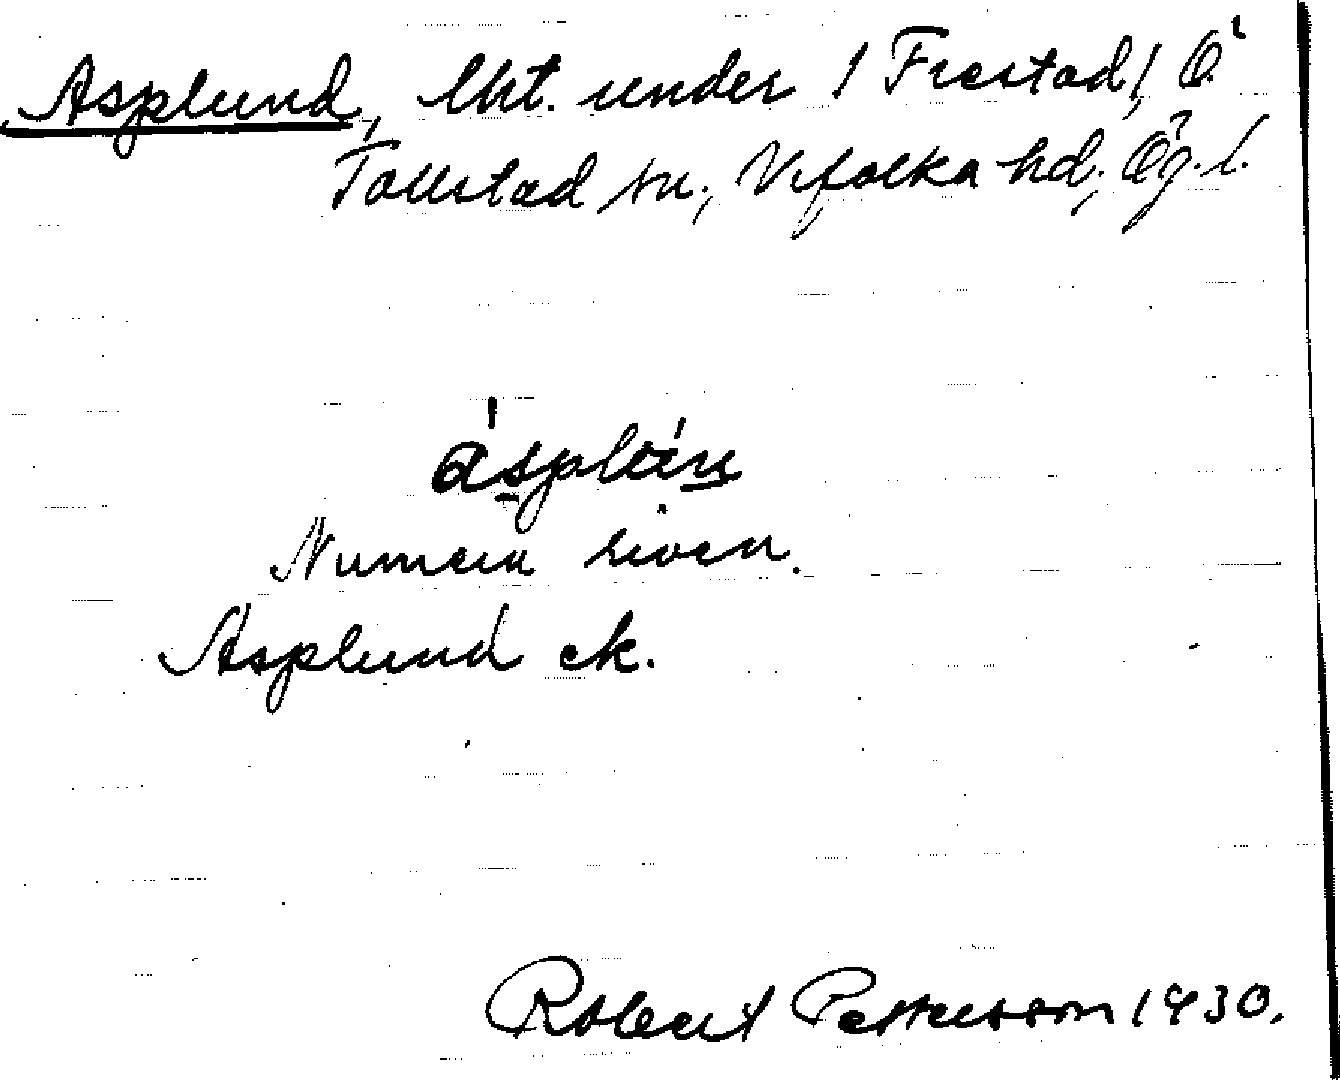 Asplund, lht. under /Frestad/, Ö.
Tollstad sn., Vifolka hd., Ög. l.
Numera riven.
Asplund ek.
Robert Pettersson 1930.